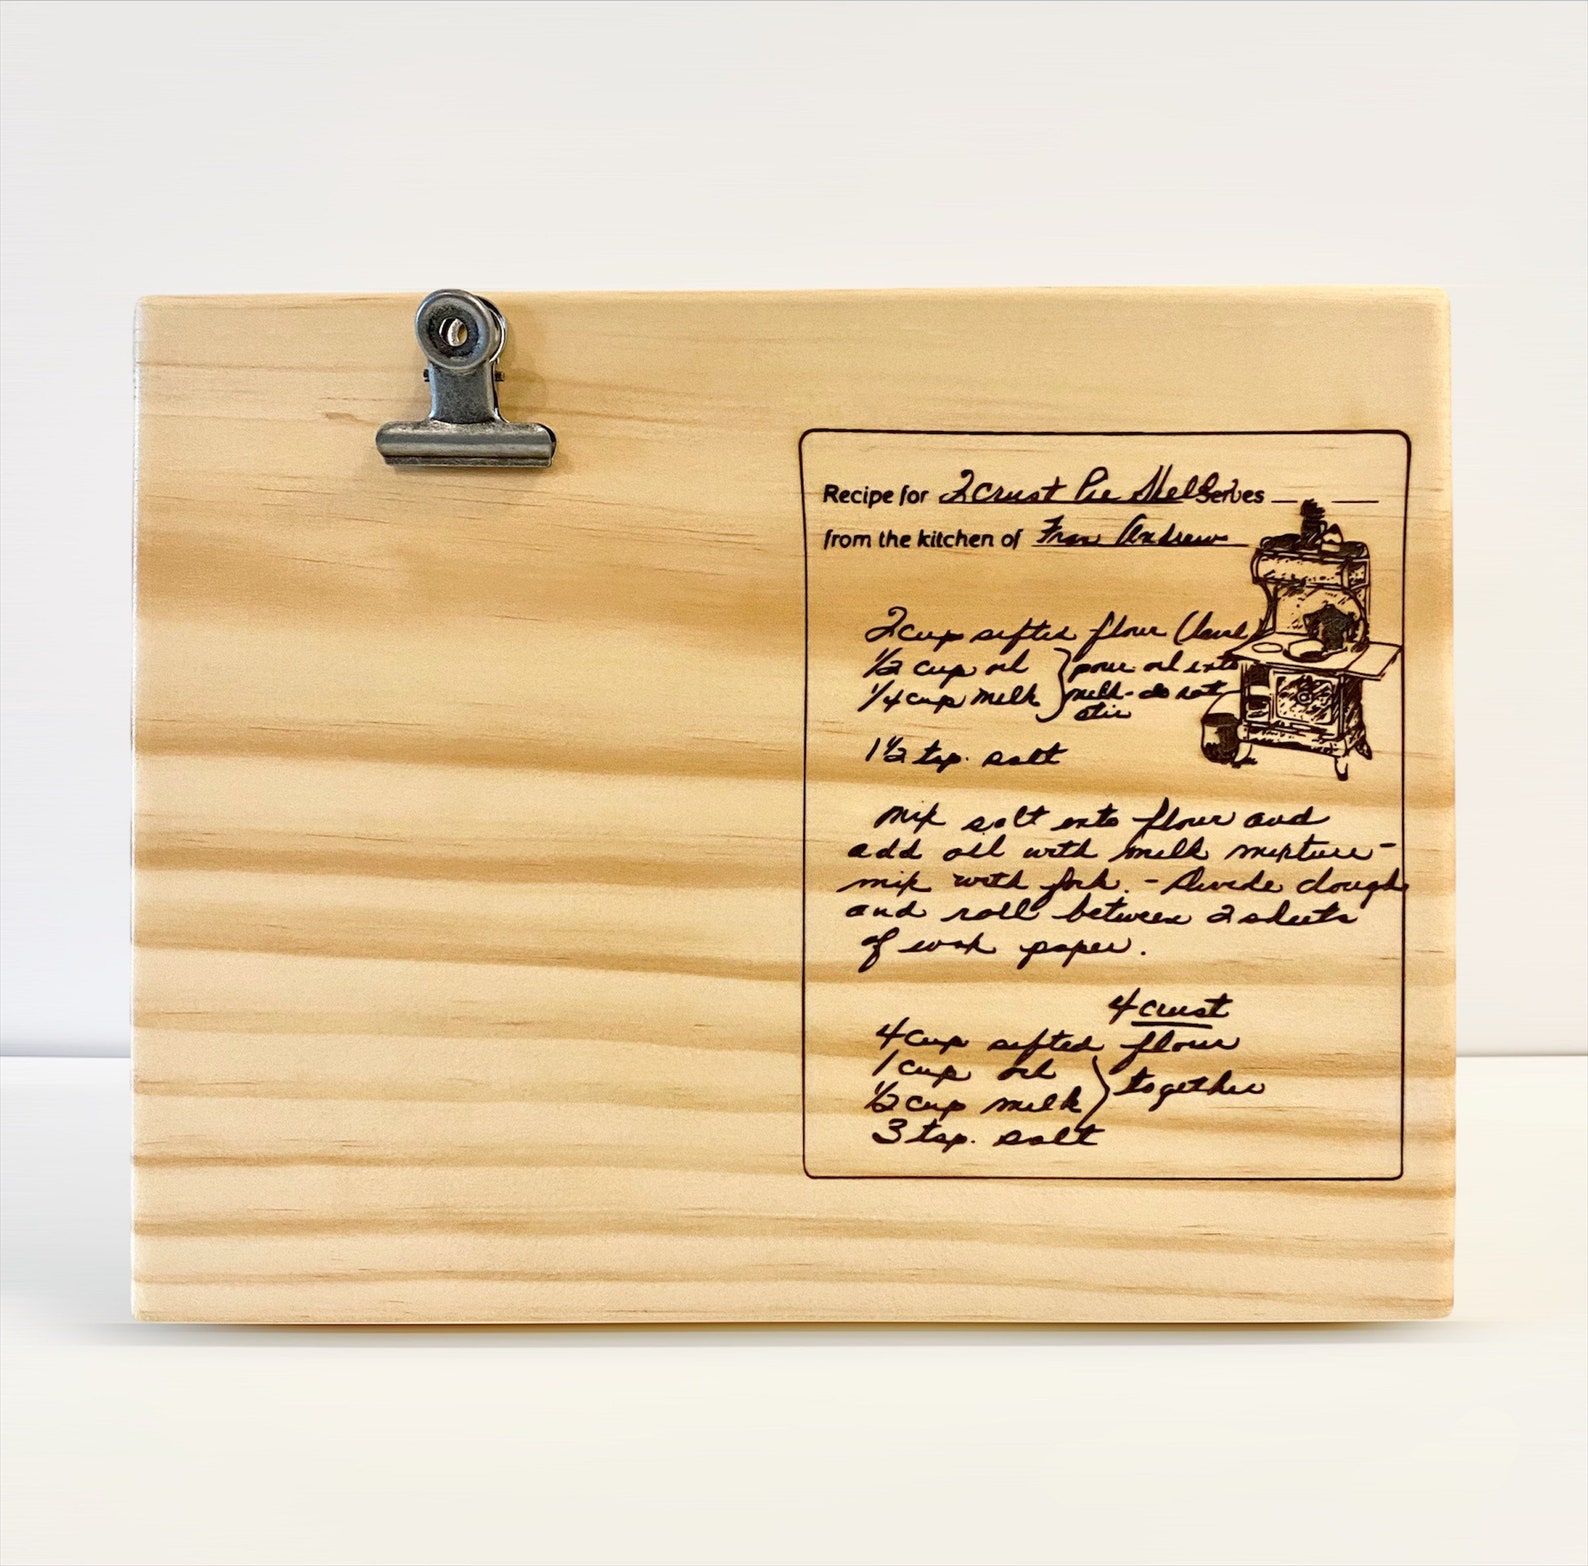 Recipe for 2 crust Pie Shell Serves
from the kitchen of Fran Andrews
2 cup sifted flour (level)
1/2 cup oil } pour oil into
1/4 cup milk } milk - do not
stir
1 1/2 tsp. salt
mix salt into flour and
add oil with milk mixture -
mix with fork. - Divide dough
and roll between 2 sheets
of wax paper.
4 crust
4 cup sifted flour
1 cup oil
1/2 cup milk } together
3 tsp. salt